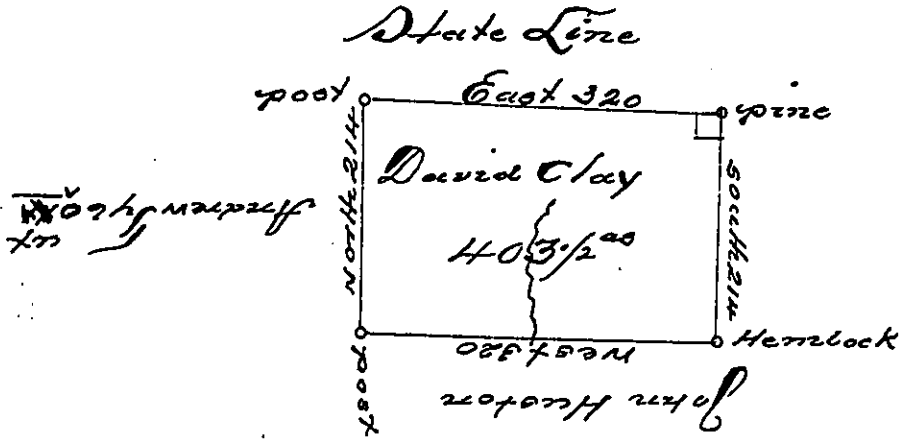 State Line
post East 320 pine
North 214
David Clay
403½ as
South 214
Andrew
post West 320 Hemlock
John Huston